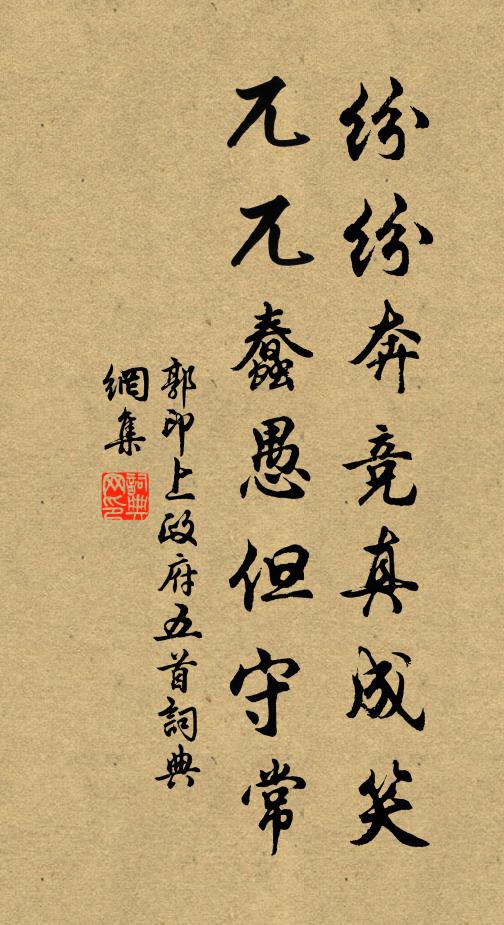 纷纷奔竞真成笑
兀兀蠢愚但守常
郭印上政府五首詞典
網集
詞典網印